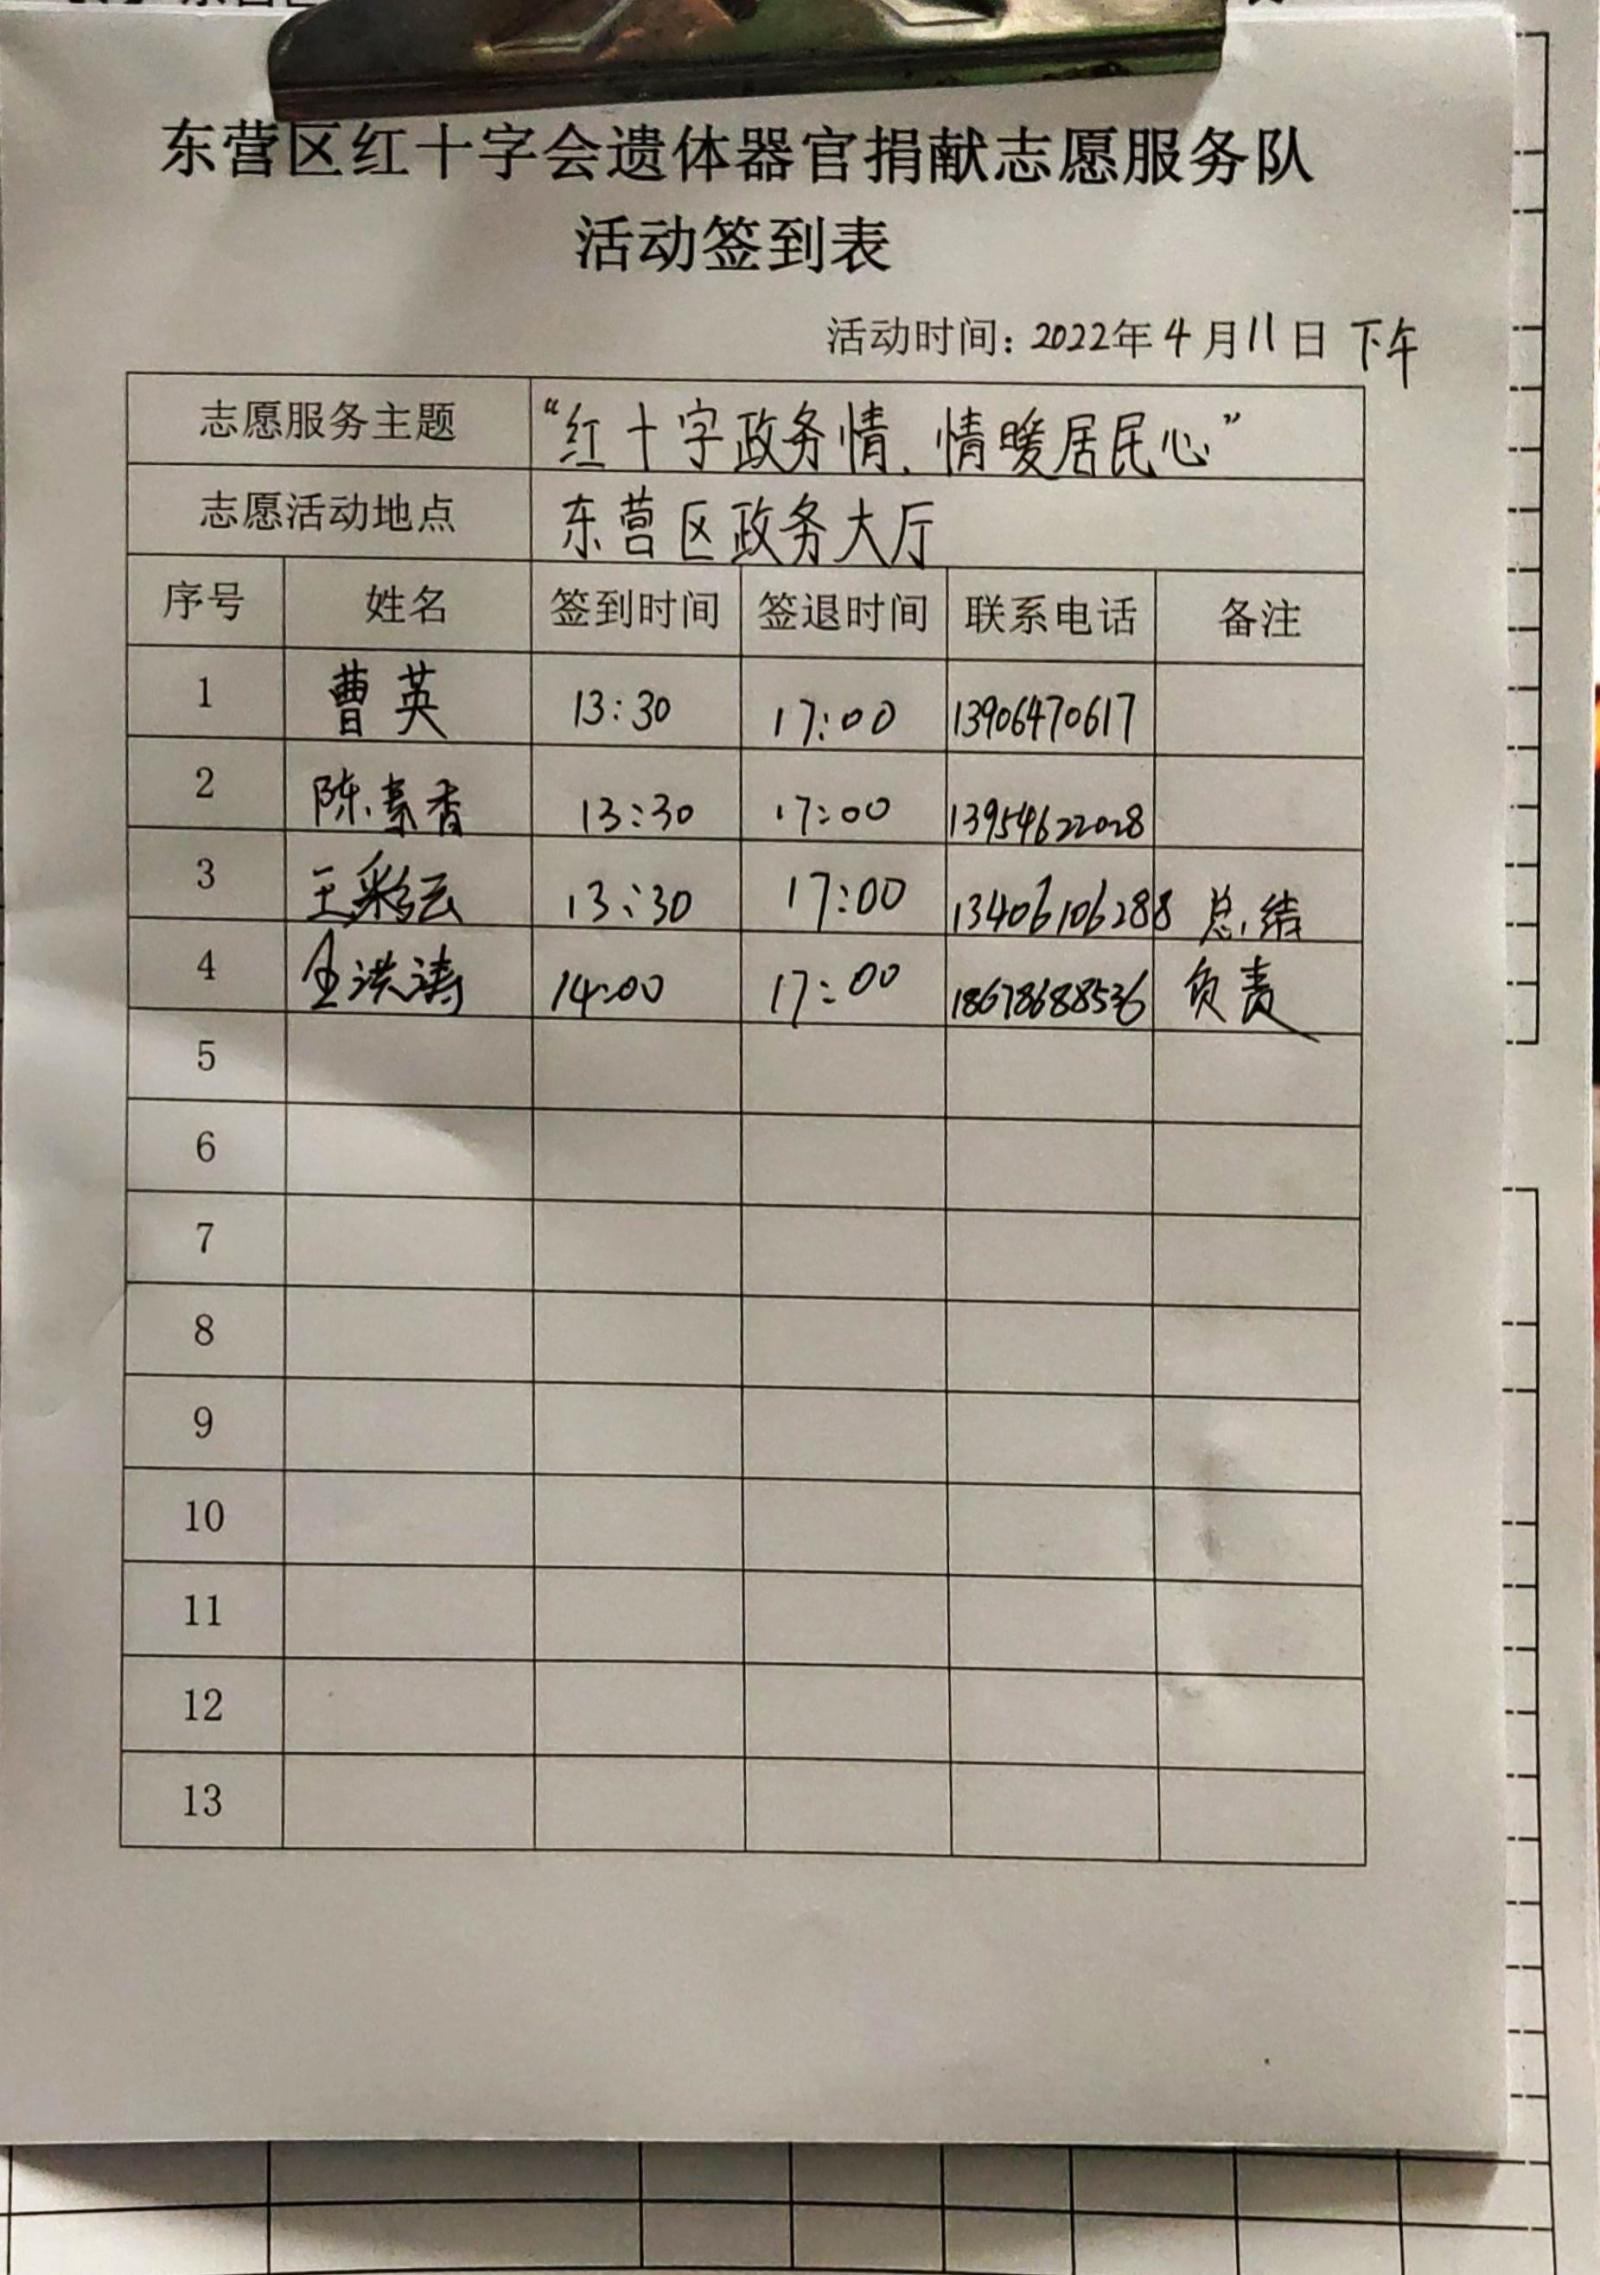 东营区红十字会遗体器官捐献志愿服务队
活动签到表
活动时间：2022年4月11日 下午
志愿服务主题 “红十字政务情、情暖居民心”
志愿活动地点 东营区政务大厅
序号 姓名 签到时间 签退时间 联系电话 备注
1 曹英 13:30 17:00 13906470617
2 陈素香 13:30 17:00 13954622028
3 王彩云 13:30 17:00 13406106288 总结
4 洪涛 14:00 17:00 18678688536 负责
5
6
7
8
9
10
11
12
13